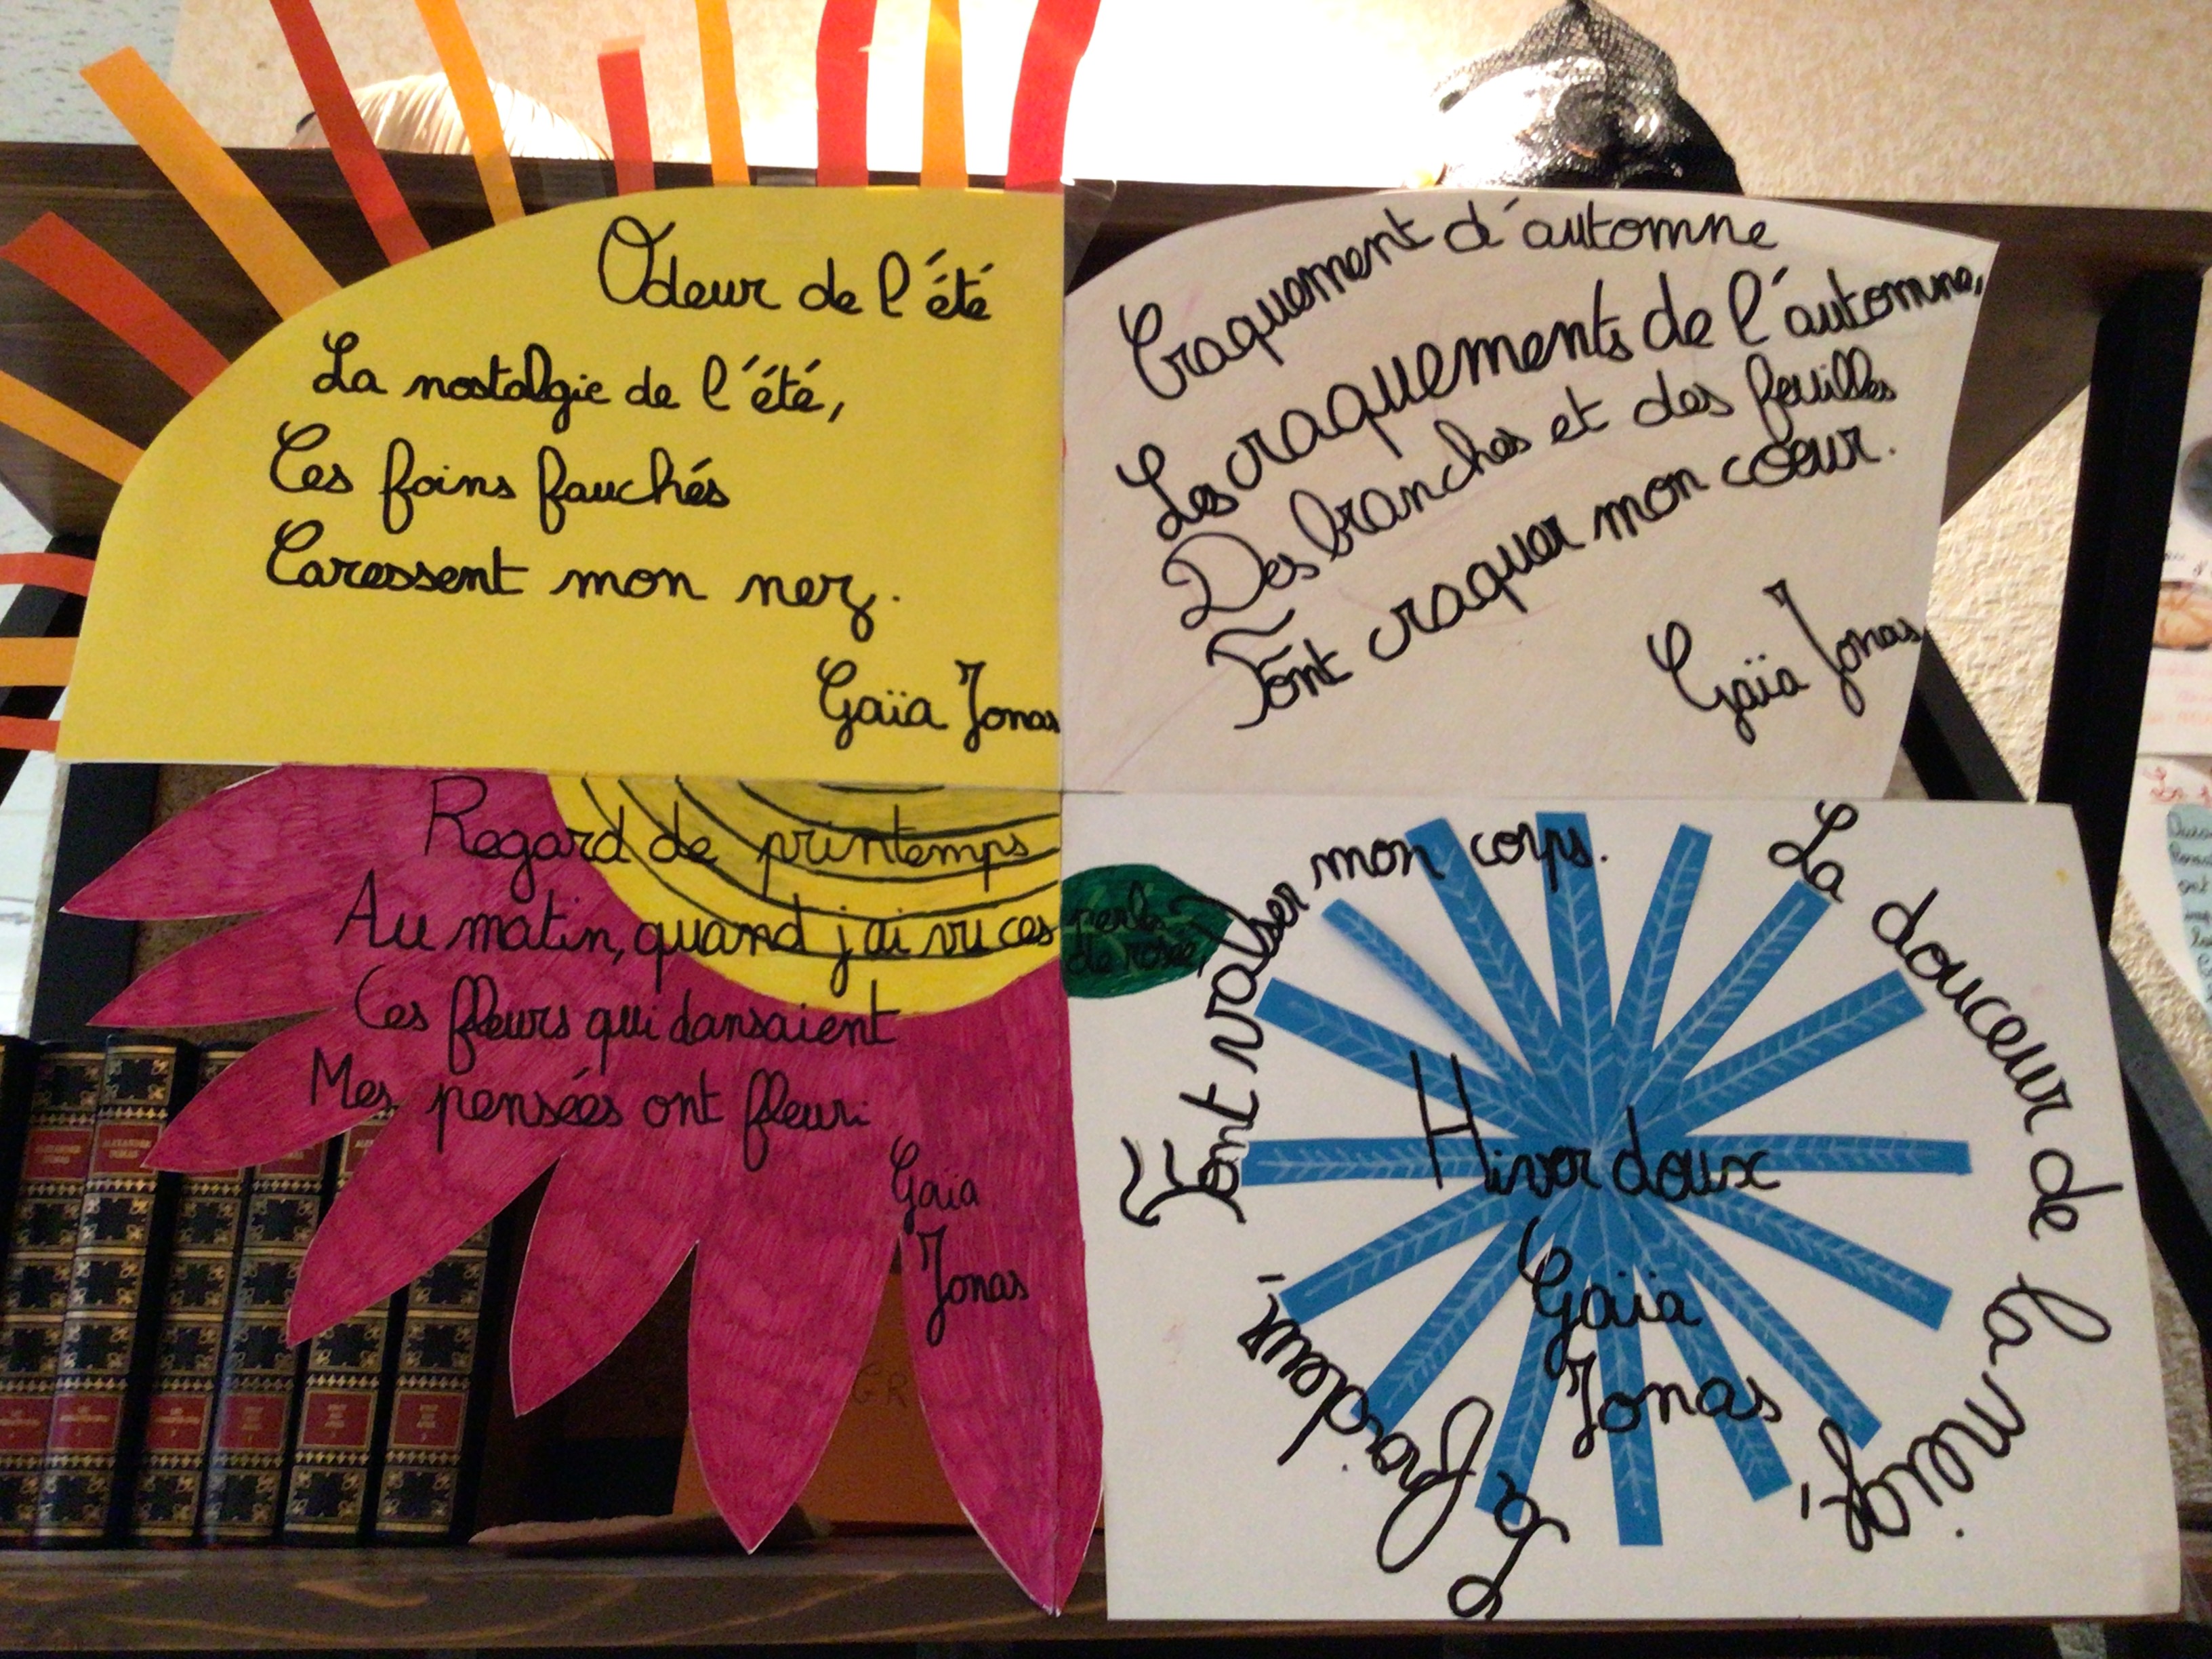 Odeur de l'été
La nostalgie de l'été,
Ces foins fauchés
Caressent mon nez.
Gaïa Jonas
Craquement d'automne
Les craquements de l'automne,
Des branches et des feuilles
Font craquer mon coeur.
Gaïa Jonas
Regard de printemps
Au matin, quand j'ai vu ces perles de rosée,
Ces fleurs qui dansaient
Mes pensées ont fleuri
Gaïa
Jonas
Hiver doux
Gaïa
Jonas
La douceur de la neige,
La froideur,
Font valser mon corps.
ALEXANDRE DUMAS